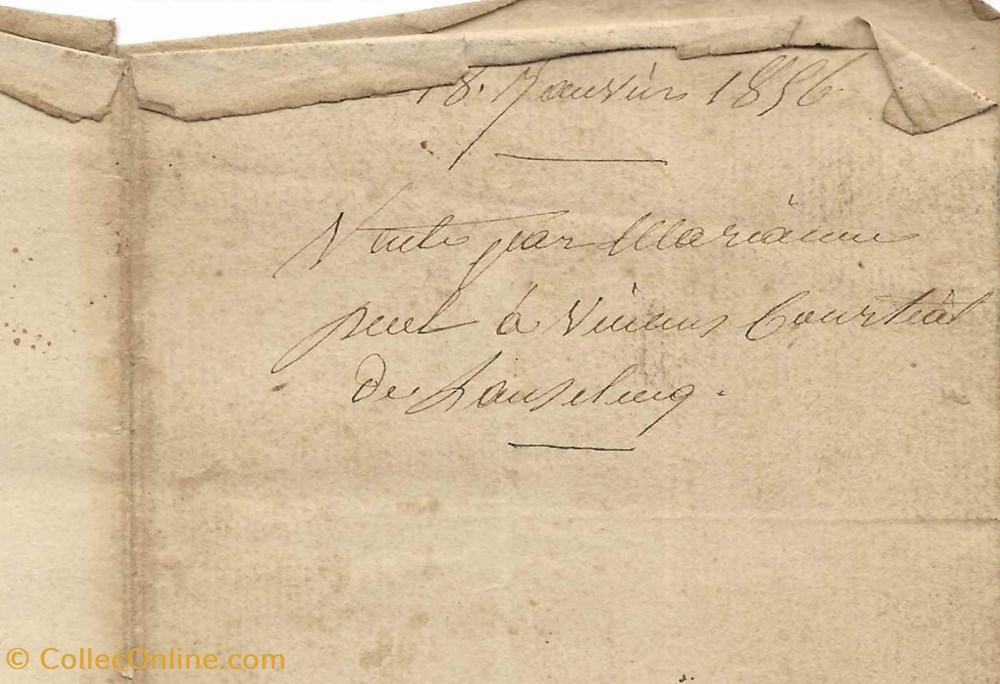 18. Janvier 1856
Vente par Marianne
à Vincens Courtial
de
© CollecOnline.com